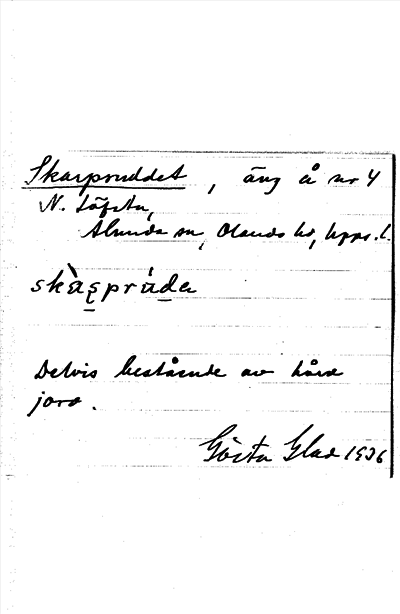 Skarpruddet, äng å nr 4
N. Löfsta,
Alunda sn, Olands hd, Uppl.
skàspru̇da
Delvis bestående av hård
jord.
Gösta Glad 1936